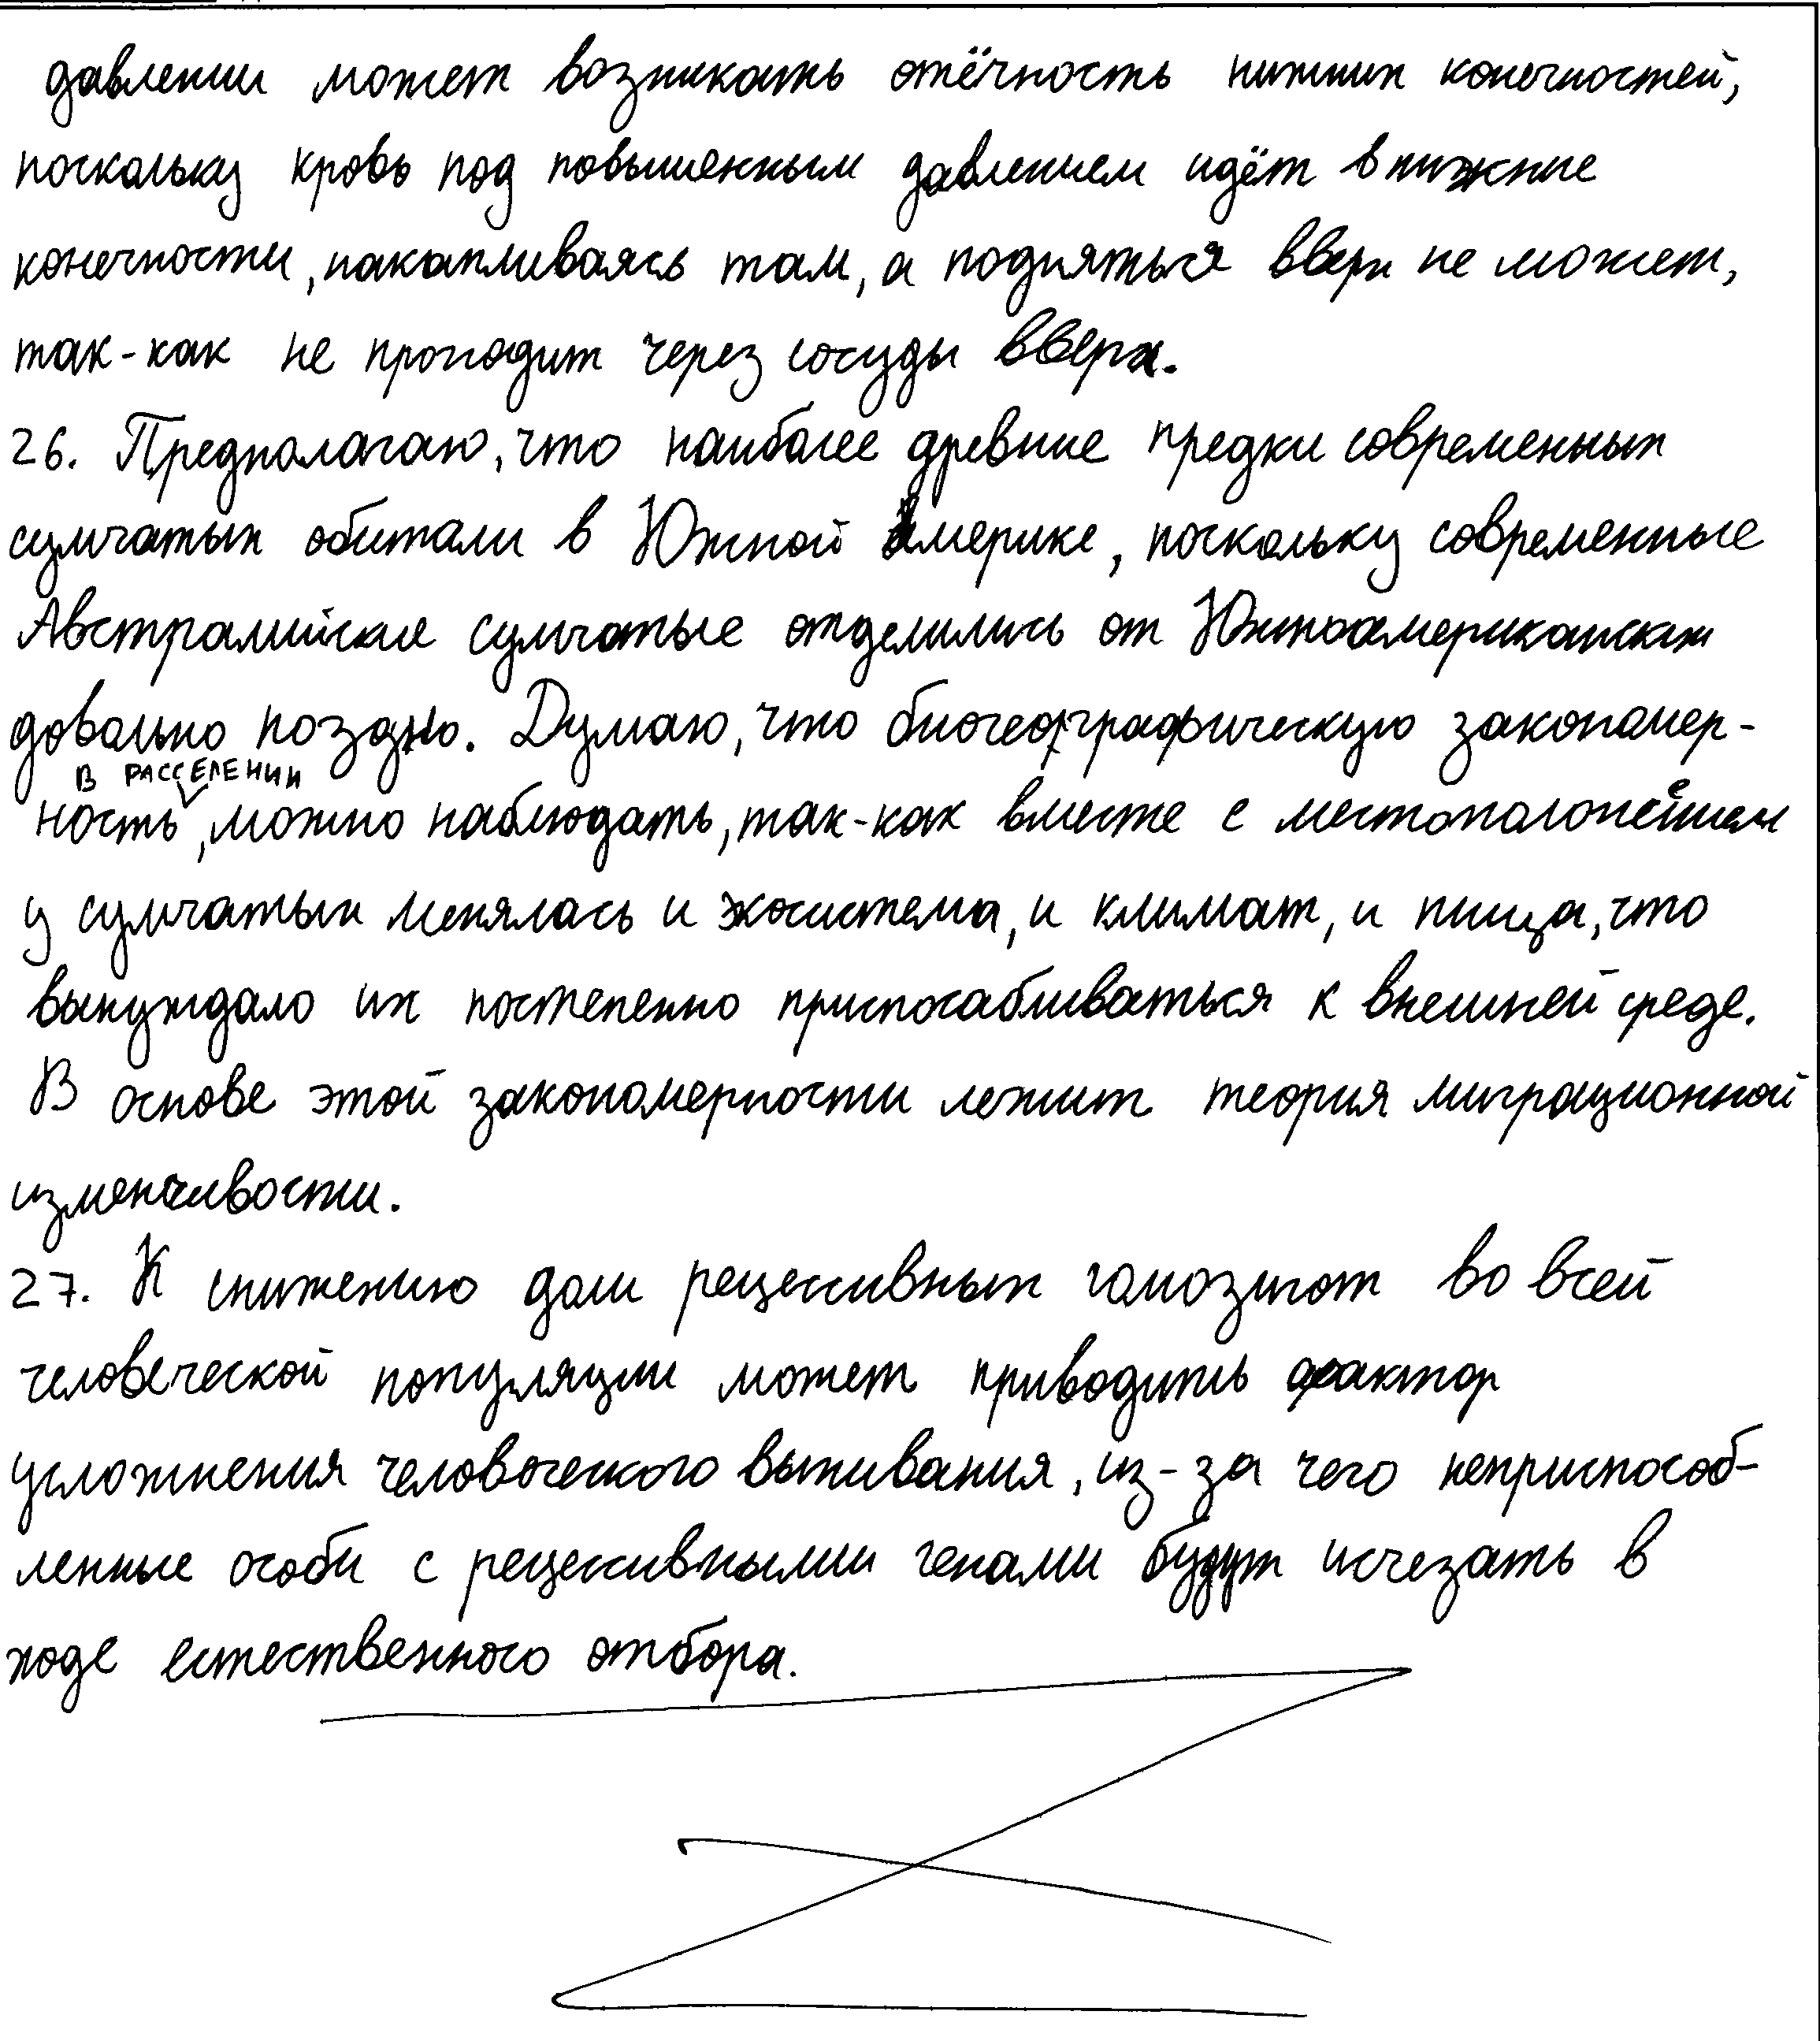 давлении может возникать отёчность нижних конечностей,
поскольку кровь под повышенным давлением идёт в нижние
конечности, накапливаясь там, а подняться вверх не может,
так-как не проходит через сосуды вверх.
26. Предполагаю, что наиболее древние предки современных
сумчатых обитали в Южной Америке, поскольку современные
Австралийские сумчатые отделились от Южноамериканских
довольно поздно. Думаю, что биогеографическую закономер-
в расселении
ность, можно наблюдать, так-как вместе с местоположением
у сумчатых менялась и экосистема, и климат, и пища, что
вынуждало их постепенно приспосабливаться к внешней среде.
В основе этой закономерности лежит теория миграционной
изменчивости.
27. К снижению доли рецессивных гомозигот во всей
человеческой популяции может приводить фактор
усложнения человеческого выживания, из-за чего неприспособ-
ленные особи с рецессивными генами будут исчезать в
ходе естественного отбора.